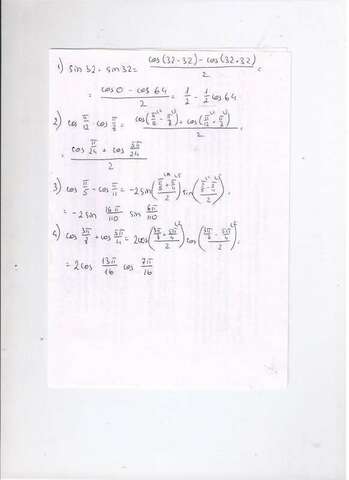 1) sin 32 · sin 32 = (cos(32-32) - cos(32+32))/2 =
= (cos 0 - cos 64)/2 = 1/2 - 1/2 cos 64
2) cos π/12 · cos π/8 = (cos(π/12 - π/8) + cos(π/12 + π/8))/2 =
= (cos π/24 + cos 5π/24)/2
3) cos π/5 - cos π/11 = -2 sin sin
= -2 sin 16π/110 sin 6π/110
4) cos 3π/8 + cos 5π/4 = 2cos((3π/8 + 5π/4)/2) cos((3π/8 - 5π/4)/2) =
= 2cos 13π/16 cos 7π/16